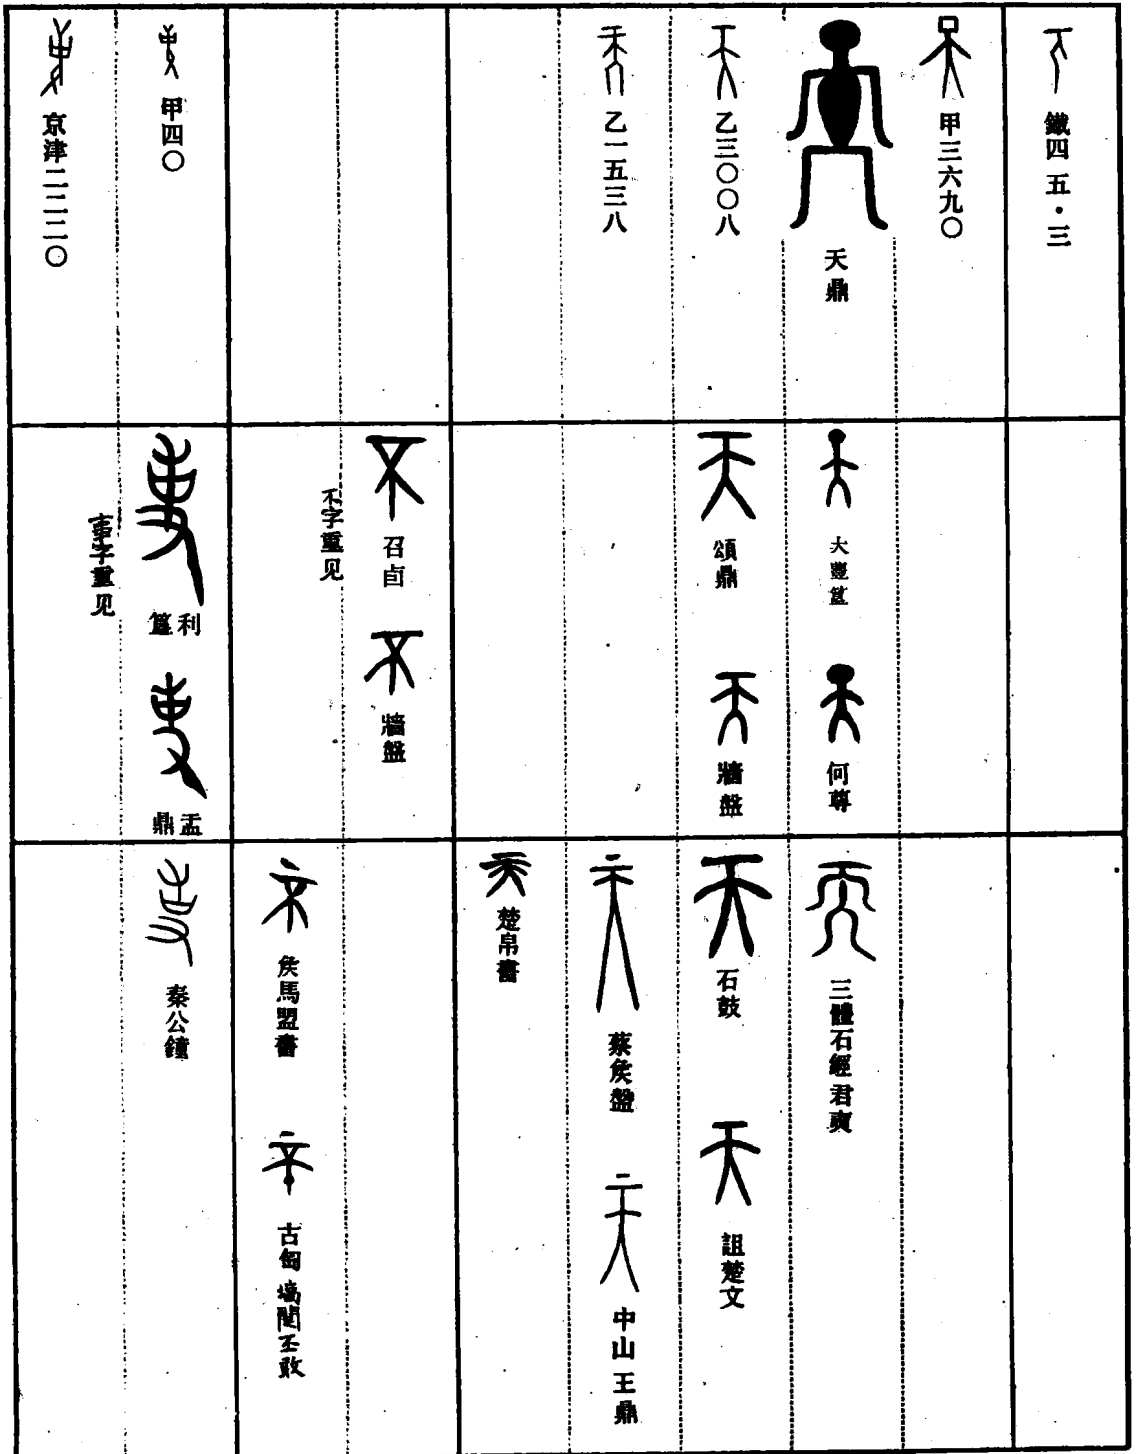 鐵四五·三
甲三六九〇
天鼎
乙三〇〇八
乙一五三八
甲四〇
京津二二二〇
大豐簋
何尊
頌鼎
牆盤
召卣
牆盤
不字重见
利簋
盂鼎
事字重见
三體石經君奭
石鼓
詛楚文
蔡侯盤
中山王鼎
楚帛書
侯馬盟書
古匋
秦公鐘